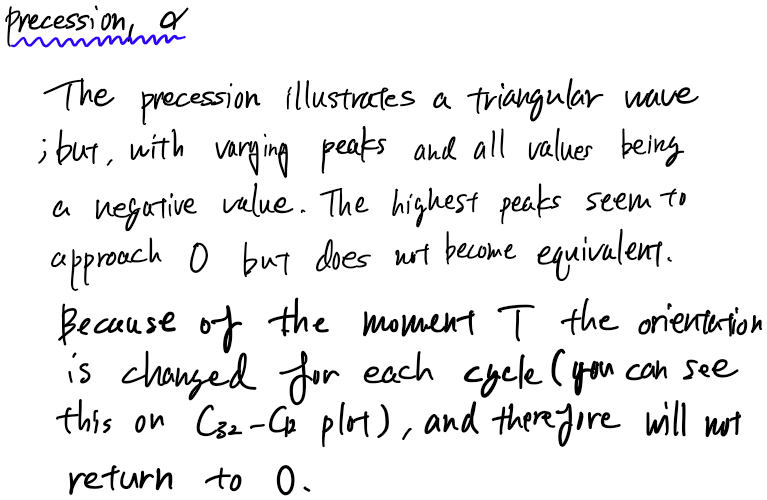 precession, α
The precession illustrates a triangular wave
; but, with varying peaks and all values being
a negative value. The highest peaks seem to
approach 0 but does not become equivalent.
Because of the moment T the orientation
is changed for each cycle (you can see
this on C₃₂-C₁₂ plot), and therefore will not
return to 0.